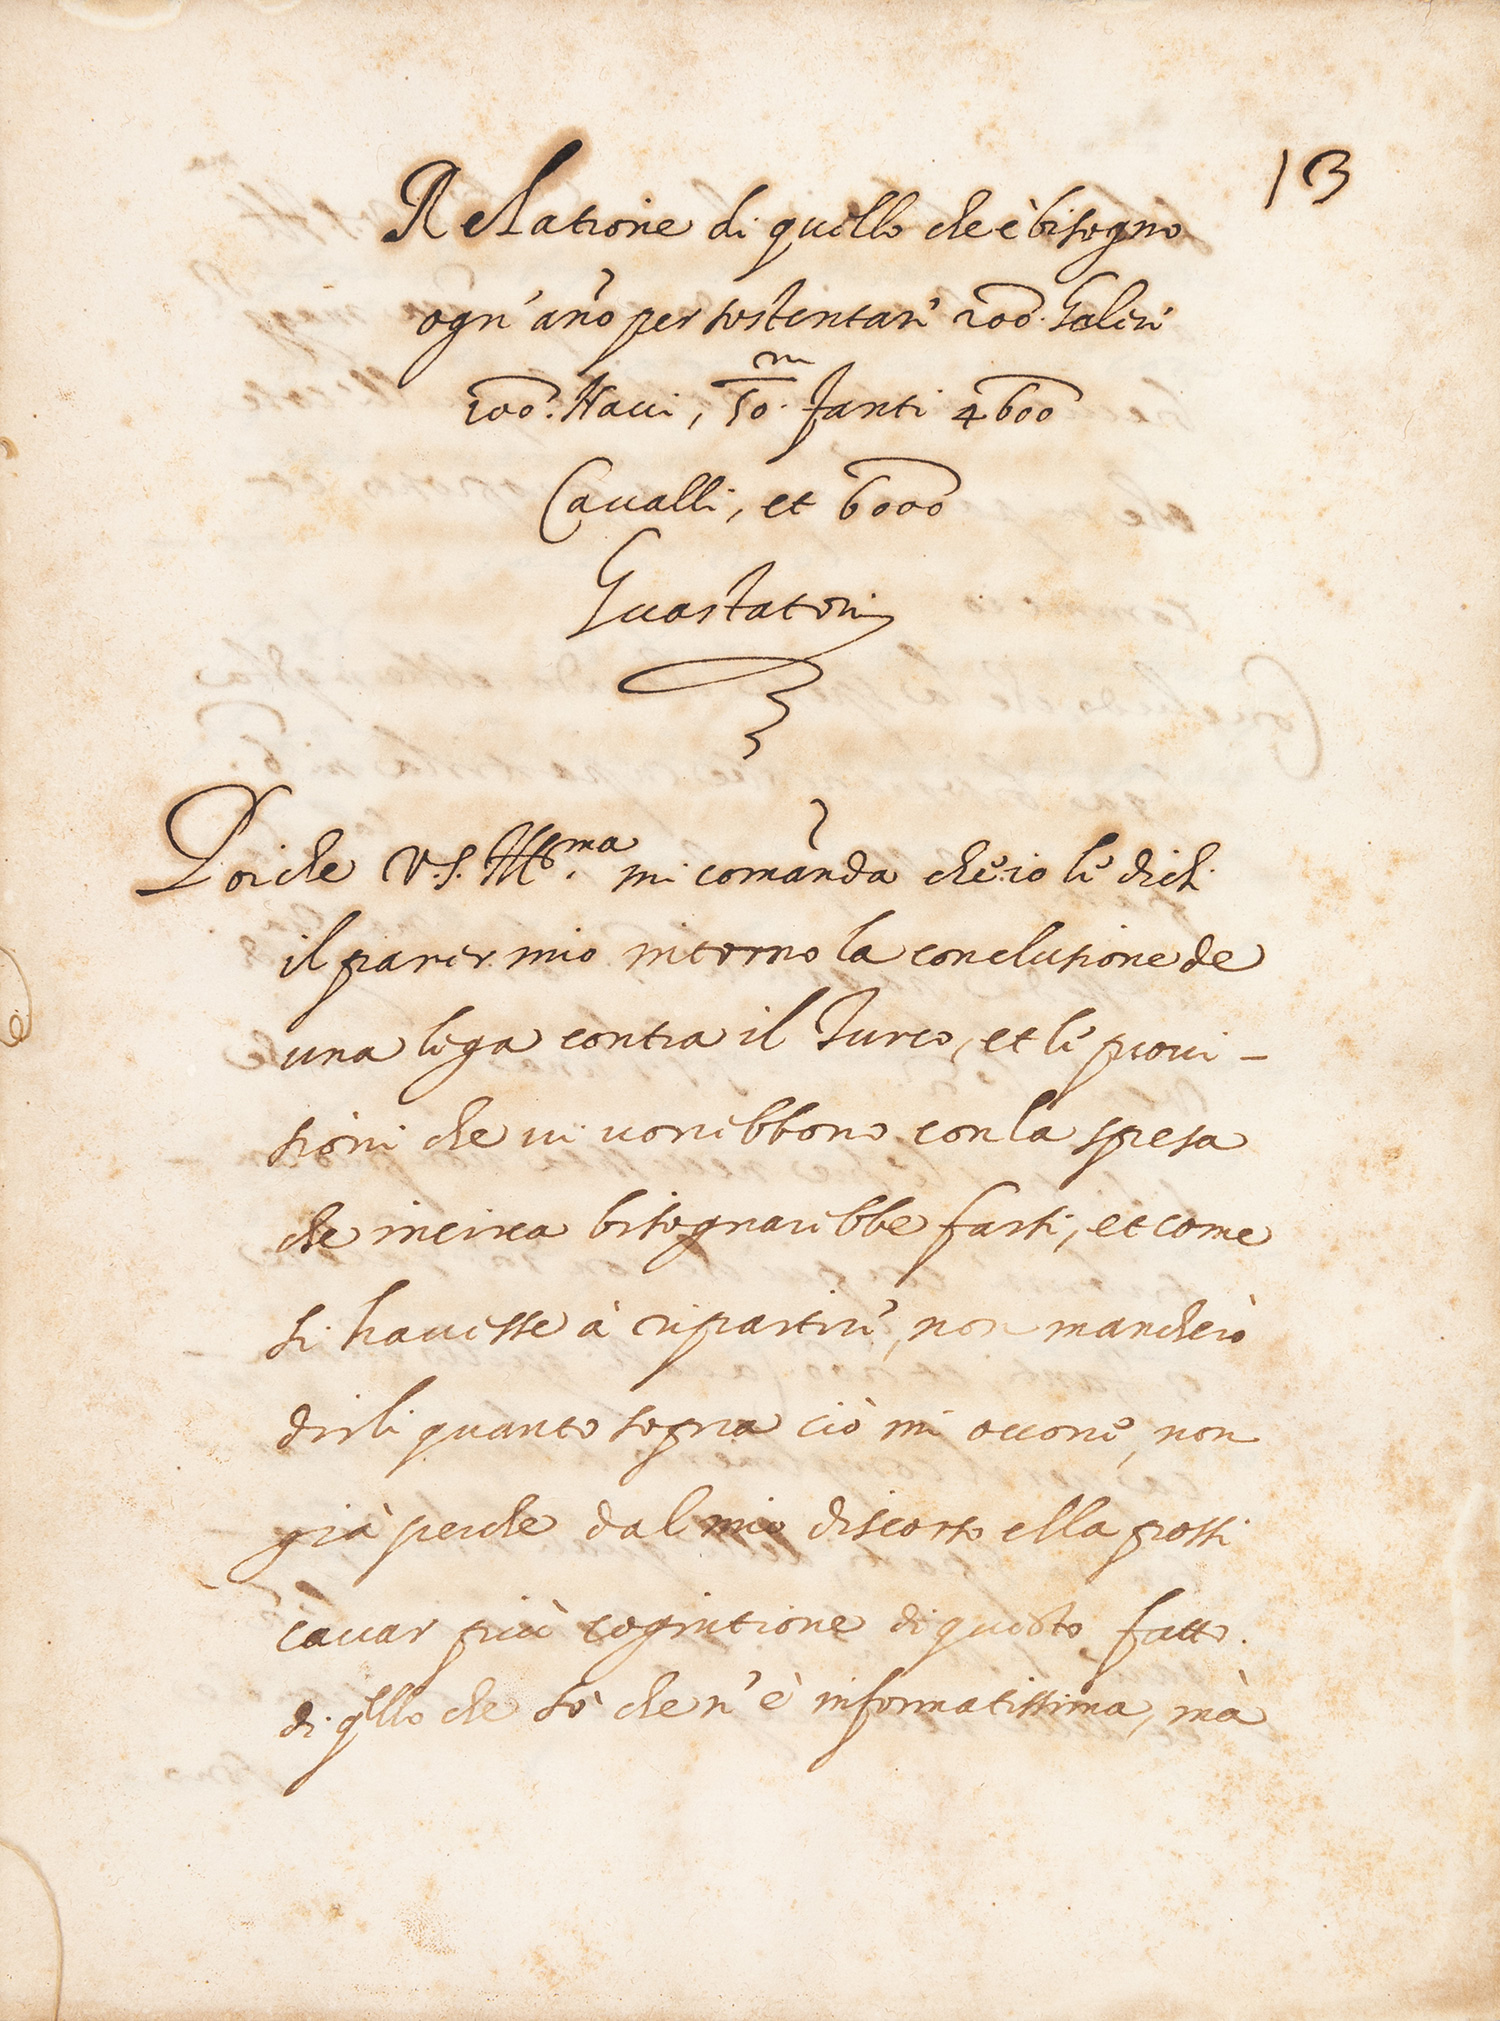 13
Relatione di quello che è bisogno
ogn' año per sostentare 200. Galere
100. Naui, 50.m Fanti 4600
Caualli, et 6000
Guastatori
Poiche V.S. Ill.ma mi comanda che io le dich.
il parer mio intorno la conclusione de
una lega contra il Turco, et le proui-
sioni che ui uorrebbono con la spesa
che incirca bisognarebbe farsi, et come
si hauesse à ripartire, non mancherò
dirli quanto sopra ciò mi occorre, non
già perche dal mio discorso ella possi
cauar più cognitione di questo fatto.
di qllo che sò che n' è informatissima, mà